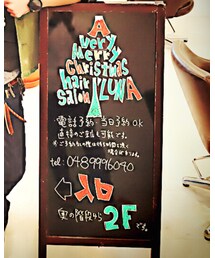 A
very
Merry
Christmas
hair
salon LUNA
電話予約・当日予約OK
直接のご来店も可能です。
※ご予約ない際は待ち時間を頂く
場合があります。
tel: 0489996040
入口
奥の階段から
2Fです。